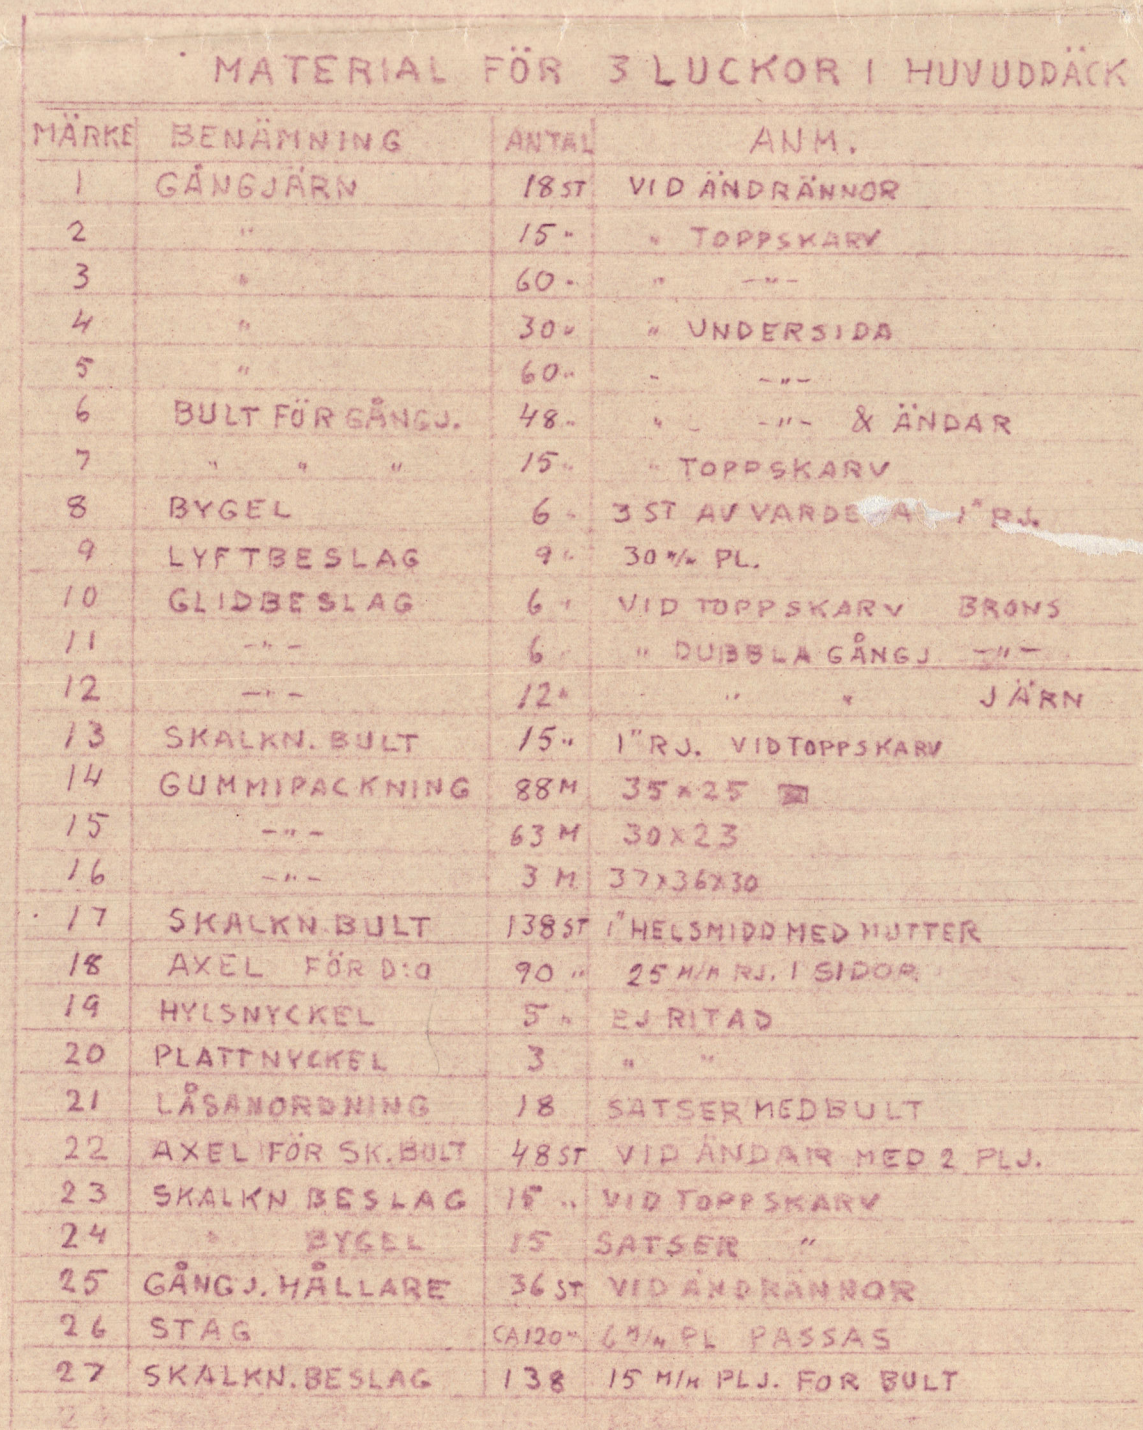 MATERIAL FÖR 3 LUCKOR I HUVUDDÄCK
MÄRKE BENÄMNING ANTAL ANM.
1 GÅNGJÄRN 18 ST VID ÄNDRÄNNOR
2 " 15 " " TOPPSKARV
3 " 60 " " -"-
4 " 30 " " UNDERSIDA
5 " 60 " " -"-
6 BULT FÖR GÅNGJ. 48 " " -"- & ÄNDAR
7 " " " 15 " " TOPPSKARV
8 BYGEL 6 " 3 ST AV VARDERA 1" RJ.
9 LYFTBESLAG 9 " 30 M/M PL.
10 GLIDBESLAG 6 " VID TOPPSKARV BRONS
11 -"- 6 " " DUBBLA GÅNGJ -"-
12 -"- 12 " " " " JÄRN
13 SKALKN. BULT 15 " 1" RJ. VID TOPPSKARV
14 GUMMIPACKNING 88 M 35 x 25
15 -"- 63 M 30 x 23
16 -"- 3 M 37x36x30
17 SKALKN. BULT 138 ST 1" HELSMIDD MED MUTTER
18 AXEL FÖR D:O 90 " 25 M/M RJ. I SIDOR
19 HYLSNYCKEL 5 " EJ RITAD
20 PLATTNYCKEL 3 " "
21 LÅSANORDNING 18 SATSER MED BULT
22 AXEL FÖR SK. BULT 48 ST VID ÄNDAR MED 2 PLJ.
23 SKALKN BESLAG 15 " VID TOPPSKARV
24 " BYGEL 15 SATSER "
25 GÅNGJ. HÅLLARE 36 ST VID ÄNDRÄNNOR
26 STAG CA 120 " 6 M/M PL PASSAS
27 SKALKN. BESLAG 138 15 M/M PLJ. FOR BULT